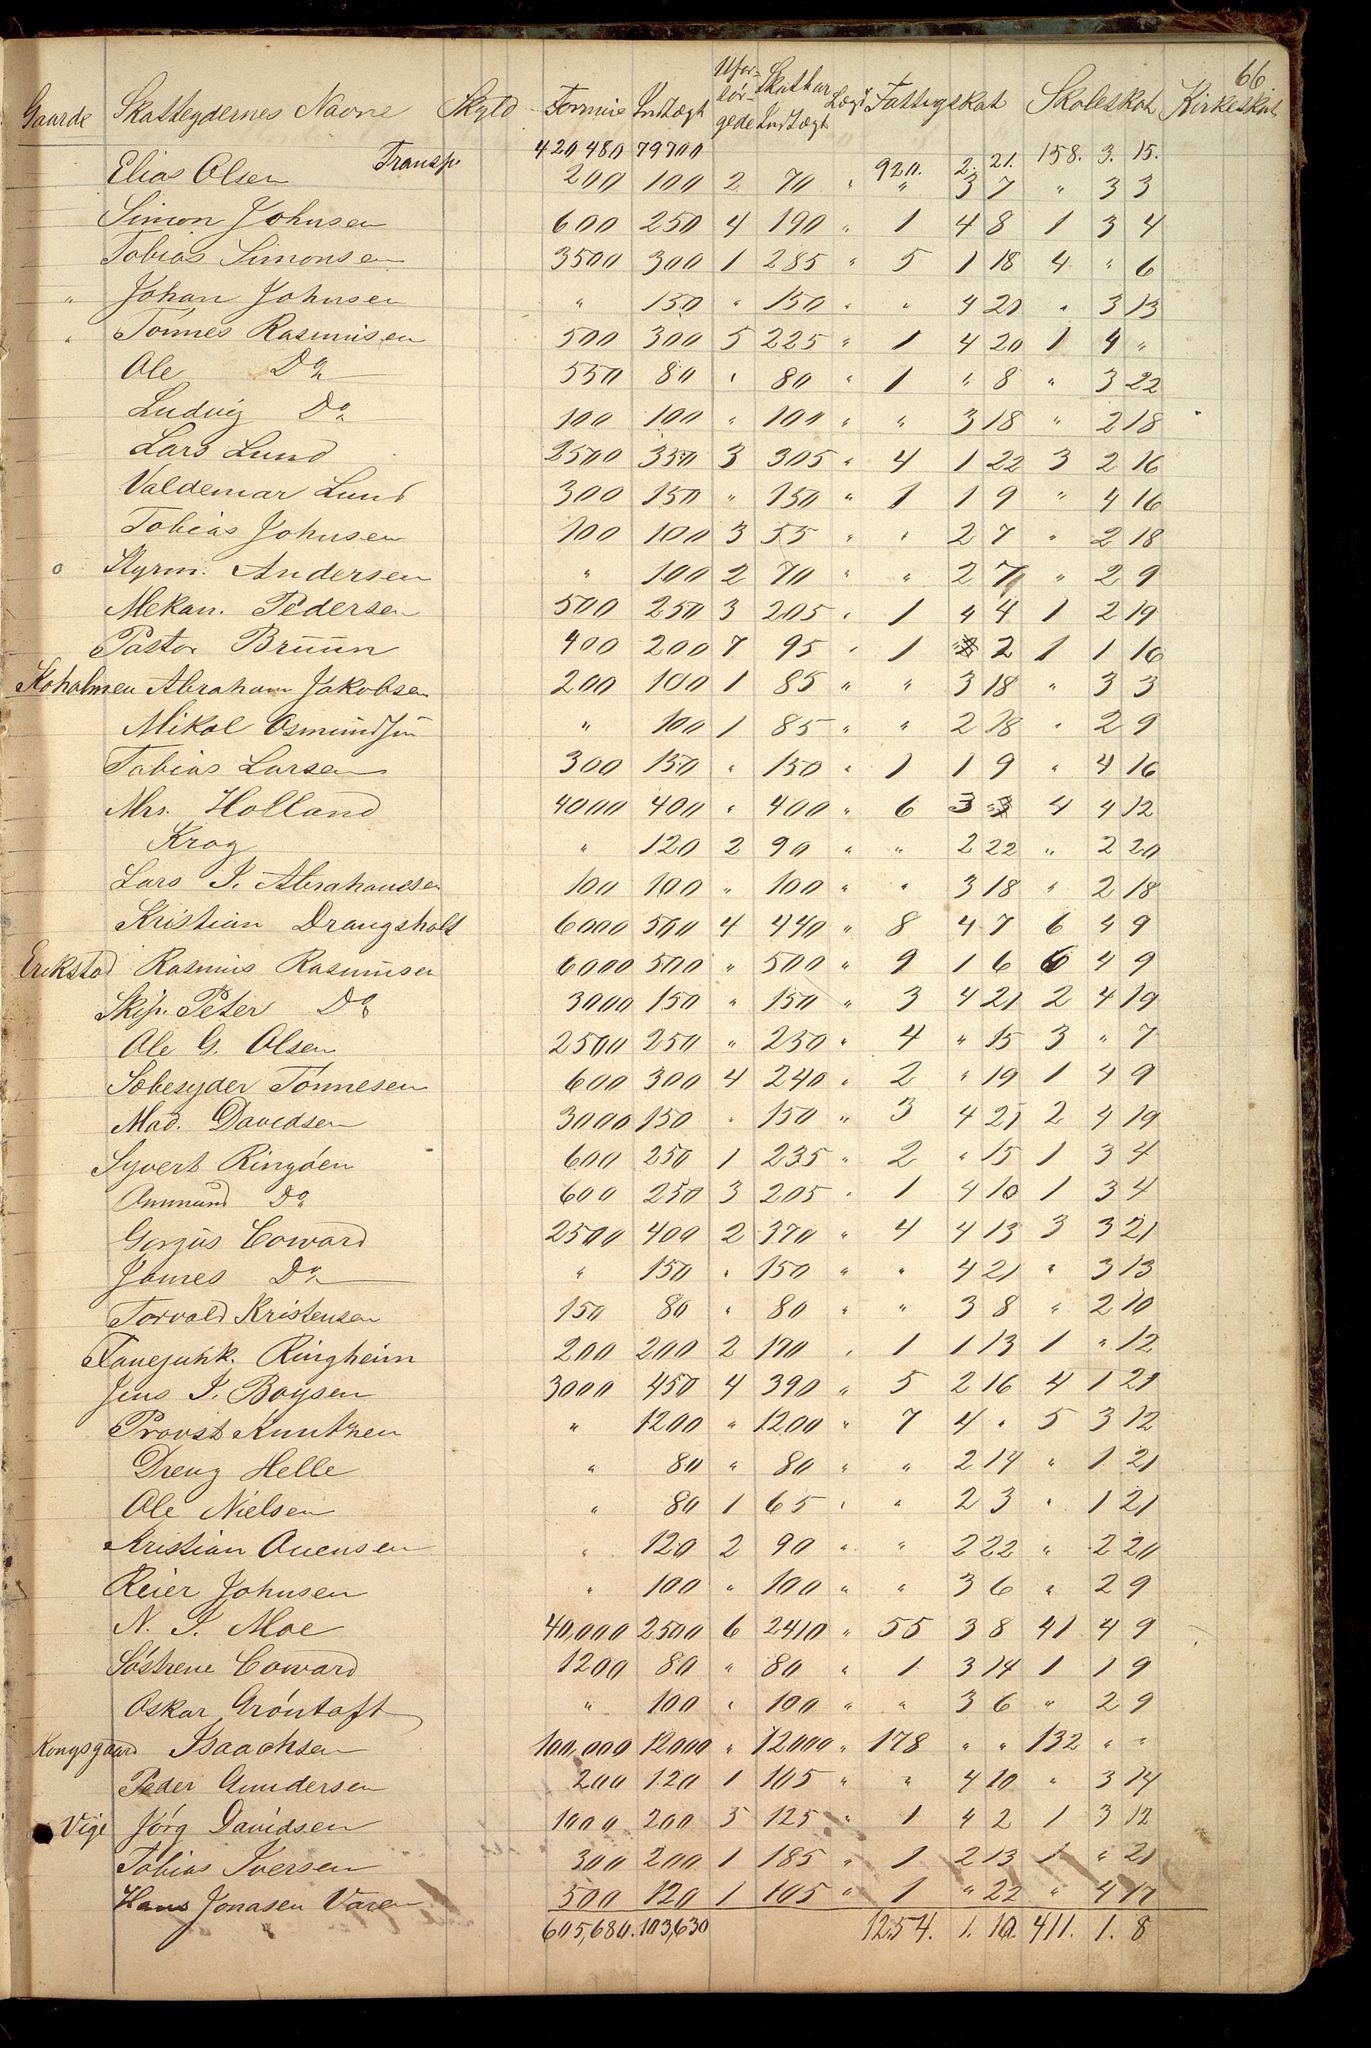 66
Gaarde Skatteydernes Navne Skyld Formue Indtægt Ufor-sør-gede Skatbar Indtægt Lægd Fattigskat Skoleskat Kirkeskat
Transp. 420480 79700 920. 2. 21. 158. 3. 15.
Elias Olsen 200 100 2 70 " " 3 7 " 3 3
Simon Johnsen 600 250 4 190 " 1 4 8 1 3 4
Tobias Simonsen 3500 300 1 285 " 5 1 18 4 " 6
" Johan Johnsen " 150 " 150 " " 4 21 " 3 13
" Tönnes Rasmusen 500 300 5 225 " 1 4 20 1 4 "
Ole Do 550 80 " 80 " 1 " 8 " 3 22
Ludvig Do 100 100 " 100 " " 3 18 " 2 18
Lars Lund 2500 350 3 305 " 4 1 22 3 2 16
Valdemar Lund 300 150 " 150 " 1 1 9 " 4 16
Tobias Johnsen 100 100 3 55 " " 2 7 " 2 18
o Styrm. Andersen " 100 2 70 " " 2 7 " 2 9
Mekan. Pedersen 500 250 3 205 " 1 4 4 1 2 19
Pastor Bruun 400 200 7 95 " 1 " 2 1 1 16
Koholmen Abraham Jakobsen 200 100 1 85 " " 3 18 " 3 3
Mikal Osmundsen " 100 1 85 " " 2 18 " 2 9
Tobias Larsen 300 150 " 150 " 1 1 9 " 4 16
Mrs. Holland 4000 400 " 400 " 6 3 " 4 4 12
Krog " 120 2 90 " " 2 22 " 2 20
Lars J. Abrahamsen 100 100 " 100 " " 3 18 " 2 18
Kristian Drangsholt 6000 500 4 440 " 8 4 7 6 4 9
Erikstad Rasmus Rasmusen 6000 500 " 500 " 9 1 6 6 4 9
Skip. Peter Do 3000 150 " 150 " 3 4 21 2 4 19
Ole G. Olsen 2500 250 " 250 " 4 " 15 3 " 7
Sæbesyder Tönnesen 600 300 4 240 " 2 " 19 1 4 9
Mad. Davidsen 3000 150 " 150 " 3 4 21 2 4 19
Syvert Ringöen 600 250 1 235 " 2 " 15 1 3 4
Ommund Do 600 250 3 205 " 1 4 10 1 3 4
Gorgus Coward 2500 400 2 370 " 4 4 13 3 3 21
James Do " 150 " 150 " " 4 21 " 3 13
Torvald Kristensen 150 80 " 80 " " 3 8 " 2 10
Ringheim 200 200 2 170 " 1 1 13 1 " 12
Jens J. Boysen 3000 450 4 390 " 5 2 16 4 1 21
Provst Knutzen " 1200 " 1200 " 7 4 " 5 3 12
Dreng Helle " 80 " 80 " " 2 14 " 1 21
Ole Nielsen " 80 1 65 " " 2 3 " 1 21
Kristian Auensen " 120 2 90 " " 2 22 " 2 20
Reier Johnsen " 100 " 100 " " 3 6 " 2 9
N. J. Moe 40,000 2500 6 2410 " 55 3 8 41 4 9
Söstrene Coward 1200 80 " 80 " 1 3 14 1 1 9
Oskar Gröntoft " 100 " 100 " " 3 6 " 2 9
Kongsgaard Isaachsen 100,000 12000 " 12000 " 178 " " 132 " "
Peder Gundersen 200 120 1 105 " " 4 10 " 3 14
Vige Jörg Davidsen 1000 200 5 125 " 1 4 2 1 3 12
Tobias Iversen 300 200 1 185 " 1 2 13 1 " 21
Hans Jonasen Varen 500 120 1 105 " 1 " 22 " 4 17
605,680. 103,630 1254. 1. 10. 411. 1. 8